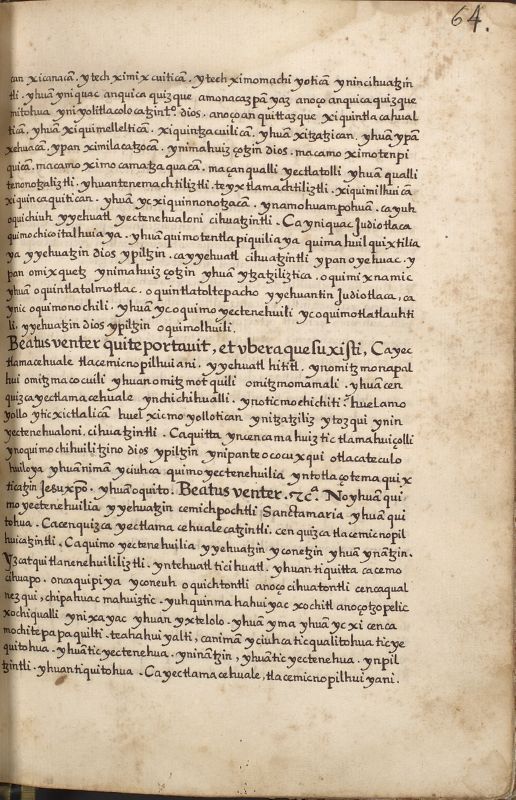 64.
can xicanacā. ytech ximixcuiticā. ytech ximomachiyoticā ynin cihuatzin
tli. yhuā yniquac anquicaquizque amonacazpā yaz anoço anquicaquizque
mitohua yniyolitlacolocatzintº. dios. anoço an quittazque xiquintlacahual
ticā. yhuā xiquimellelticā. xiquintzacuilicā. yhuā xitzatzican. yhuā ypā
xehuacā. ypan ximilacatzocā. ynimahuizçotzin dios. macamo ximotenpi
quicā. macamo ximocamatzaquacā. maçan qualli yectlatolli yhuā qualli
tenonotzaliztli. yhuan tenemachtiliztli. teyxtlamachtiliztli. xiquimilhuicā
xiquincaquitican. yhuā ycxiquinnonotzacā. ynamohuampohuā. cayuh
oquichiuh yyehuatl yectenehualoni cihuatzintli. Cayniquac Judiotlaca
quimochicoitalhuiaya. yhuā quimotentlapiquiliaya quimahuilquixtilia
ya yyehuatzin dios ypiltzin. cayyehuatl cihuatzintli ypan oyehuac. y
pan omixquetz ynimahuizçotzin yhuā ytzatziliztica. oquimixnamic
yhuā oquintlatolmotlac. oquintlatoltepacho yyehuantin Judiotlaca, ca
ynic oquimonochili. yhuā yc oquimoyectenehuili yc oquimotlatlauhti
li, yyehuatzin dios ypiltzin oquimolhuili.
Beatus venter qui te portauit, et vbera que suxisti, Cayec
tlamacehuale tlacemicnopilhuiani. yyehuatl hititl. ynomitzmonapal
hui omitzmocacuili yhuan omitzmotquili omitzmomamali. yhuā cen
quizca yectlamacehuale ynchichihualli. ynoticmochichiti. huel amo
yollo ytic xictlalicā huel xicmoyollotican ynitzatziliz ytozqui ynin
yectenehualoni. cihuatzintli. Caquitta yncenca mahuiztic tlamahuiçolli
ynoquimochihuilitzino dios ypiltzin ynipanteococuxqui otlacateculo
huiloya yhuā nimā yciuhca quimoyectenehuilia yntotlaçotemaquix
ticatzin Jesuxpō. yhuā oquito. Beatus venter. &cª. No yhuā qui
moyectenehuilia yyehuatzin cemicac ichpochtli Sancta maria yhuā qui
tohua. Cacenquizca yectlamacehuale catzintli. cenquizca tlacemicnopil
huicatzintli. Caquimoyectenehuilia yyehuatzin yconetzin yhuā ynātzin.
Yzcatqui tlanenehuililiztli. yntehuatl ticihuatl. yhuan tiquitta cacemo
cihuapo. oncaquipiya yconeuh oquichtontli anoço cihuatontli cencaqual
nezqui, chipahuac mahuiztic. yuhquinma hahuiyac xochitl anoçotzopelic
xochiqualli ynixayac yhuan yxtelolo. yhuā yma yhuā ycxi cenca
mochitepapaquilti. teahahuiyalti, canimā yciuhca ticqualitohua ticye
quitohua. yhuā tic yectenehua. yninātzin, yhuā tic yectenehua. ynpil
tzintli. yhuan tiquitohua. Ca yectlamacehuale, tlacemicnopilhuiyani.